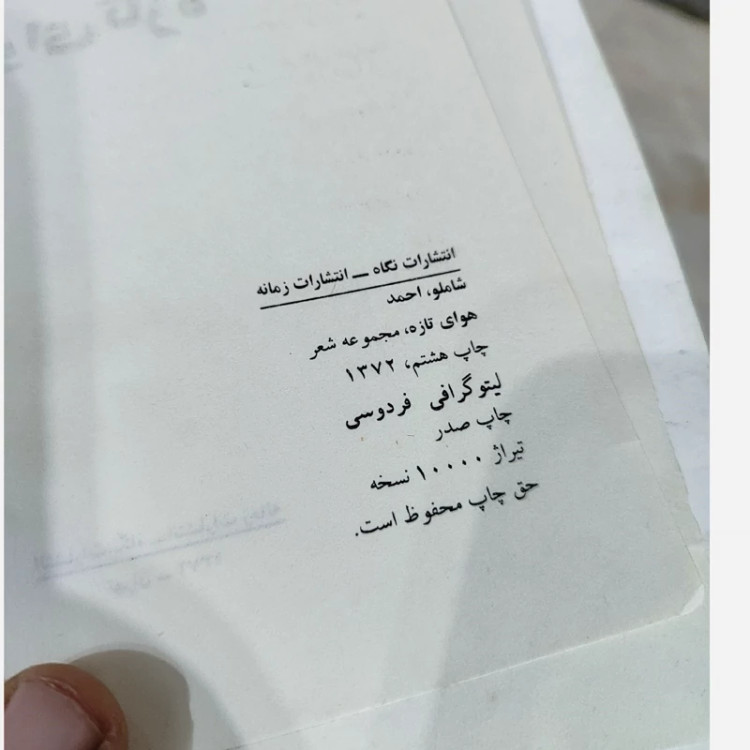 انتشارات نگاه — انتشارات زمانه
شاملو، احمد
هوای تازه، مجموعه شعر
چاپ هشتم، ۱۳۷۲
لیتوگرافی فردوسی
چاپ صدر
تیراژ ۱۰۰۰۰ نسخه
حق چاپ محفوظ است.